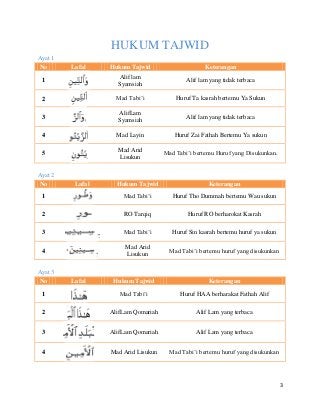 HUKUM TAJWID
Ayat 1
No Lafal Hukum Tajwid Keterangan
1 Alif lam Syamsiah Alif lam yang tidak terbaca
2 Mad Tabi'i Huruf Ta kasrah bertemu Ya Sukun
3 Aliflam Syamsiah Alif lam yang tidak terbaca
4 Mad Layin Huruf Zai Fathah Bertemu Ya sukun
5 Mad Arid Lisukun Mad Tabi'i bertemu Huruf yang Disukunkan.
Ayat 2
No Lafal Hukum Tajwid Keterangan
1 Mad Tabi'i Huruf Tho Dummah bertemu Wau sukun
2 RO Tarqiq Huruf RO berharokat Kasrah
3 Mad Tabi'i Huruf Sin kasrah bertemu huruf ya sukun
4 Mad Arid Lisukun Mad Tabi'i bertemu huruf yang disukunkan
Ayat 3
No Lafal Hukum Tajwid Keterangan
1 هَٰذَا Mad Tabi'i Huruf HAA berharakat Fathah Alif
2 AlifLam Qomariah Alif Lam yang terbaca
3 AlifLam Qomariah Alif Lam yang terbaca
4 Mad Arid Lisukun Mad Tabi'i bertemu huruf yang disukunkan
3